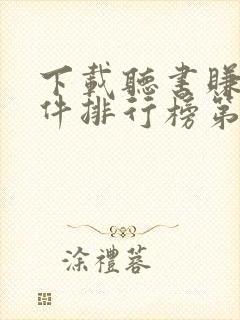 下載聽書賺
件排行榜第
涂禮蓉